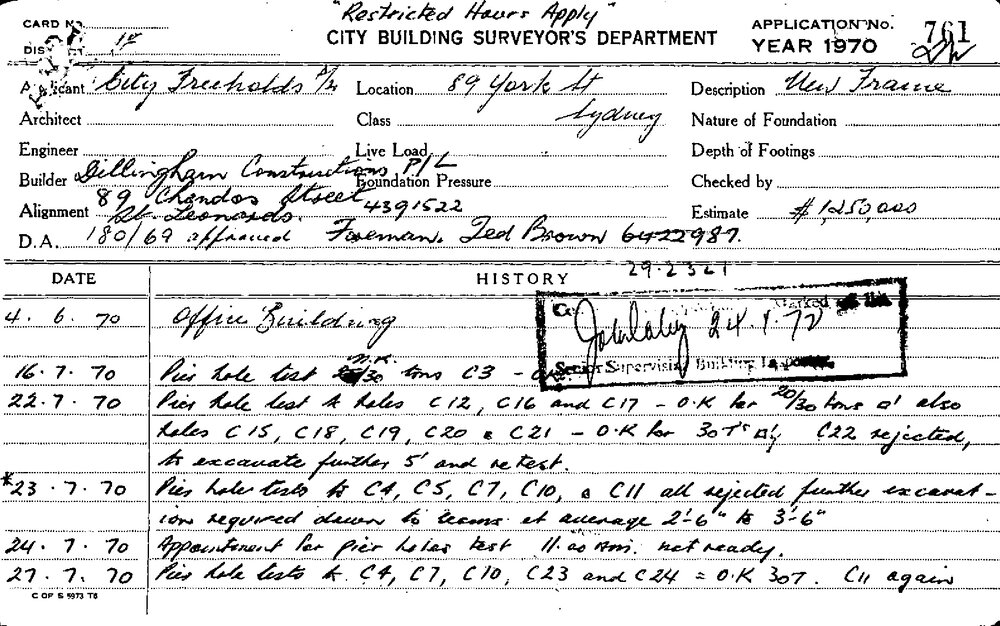 "Restricted Hours Apply"
CARD No.
CITY BUILDING SURVEYOR'S DEPARTMENT
APPLICATION No. 761
YEAR 1970
Applicant City Freeholds P/L Location 89 York St Description New Frame
Architect Class Sydney Nature of Foundation
Engineer Live Load Depth of Footings
Builder Dillingham Constructions P/L Foundation Pressure Checked by
Alignment 89 Chandos Street St. Leonards. 4391522 Estimate $1,250,000
D.A. 180/69 approved Foreman. Ted Brown 6422987.
DATE HISTORY 29.2321
4. 6. 70 Office Building
Marked 24.1.72
Senior Supervising Building
16. 7. 70 Pier hole test N.R. 30 tons C3 -
22. 7. 70 Pier hole test to holes C12, C16 and C17 - O.K for 20/30 tons □' also
holes C15, C18, C19, C20 & C21 - O.K for 30T's □'. C22 rejected,
to excavate further 5' and retest.
*23. 7. 70 Pier hole tests to C4, C5, C7, C10, & C11 all rejected further excavat-
ion required down to seams at average 2'-6" to 3'-6"
24. 7. 70 Appointment for pier holes test 11.00 am. not ready.
27. 7. 70 Pier hole tests to C4, C7, C10, C23 and C24 = O.K 30T. C11 again
C OF S 5973 T6